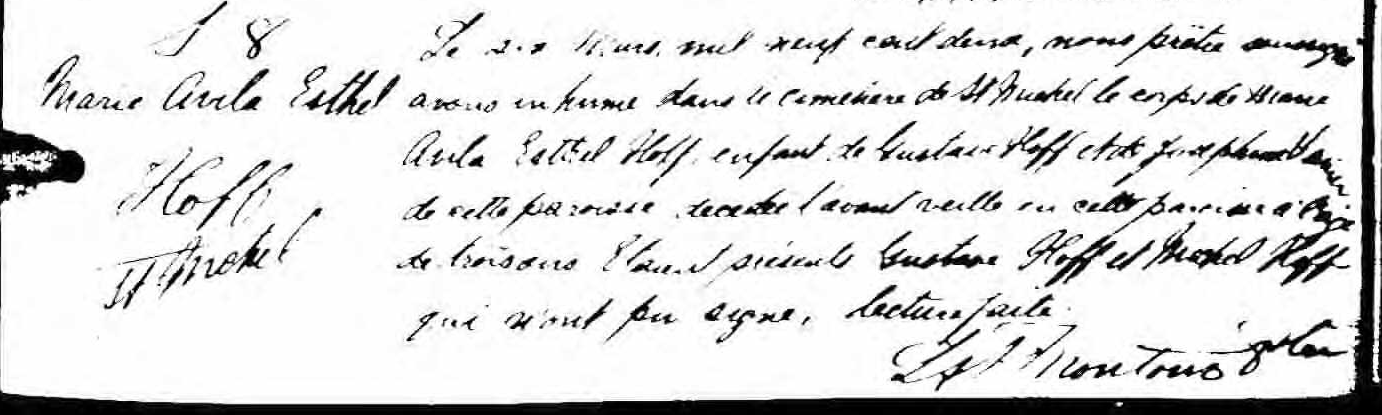 S 8
Marie Avila Esthel
Hoff
St Michel
Le six Mars mil neuf cent deux, nous prêtre soussigné
avons inhumé dans le cimetière de St Michel le corps de Marie
Avila Esthel Hoff, enfant de Gustave Hoff et de Josephine
de cette paroisse decedée l'avant veille en cette paroisse a l'age
de trois ans Etaient présents Gustave Hoff et Michel Hoff
qui n'ont pu signé, lecture faite.